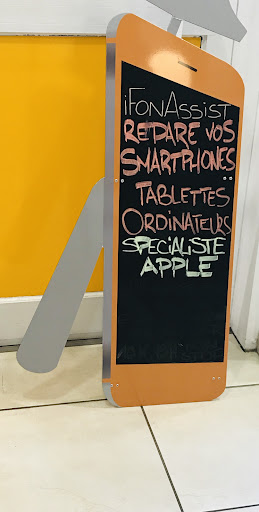 iFonAssist
RÉPARE VOS
SMARTPHONES
TABLETTES
ORDINATEURS
SPÉCIALISTE
APPLE